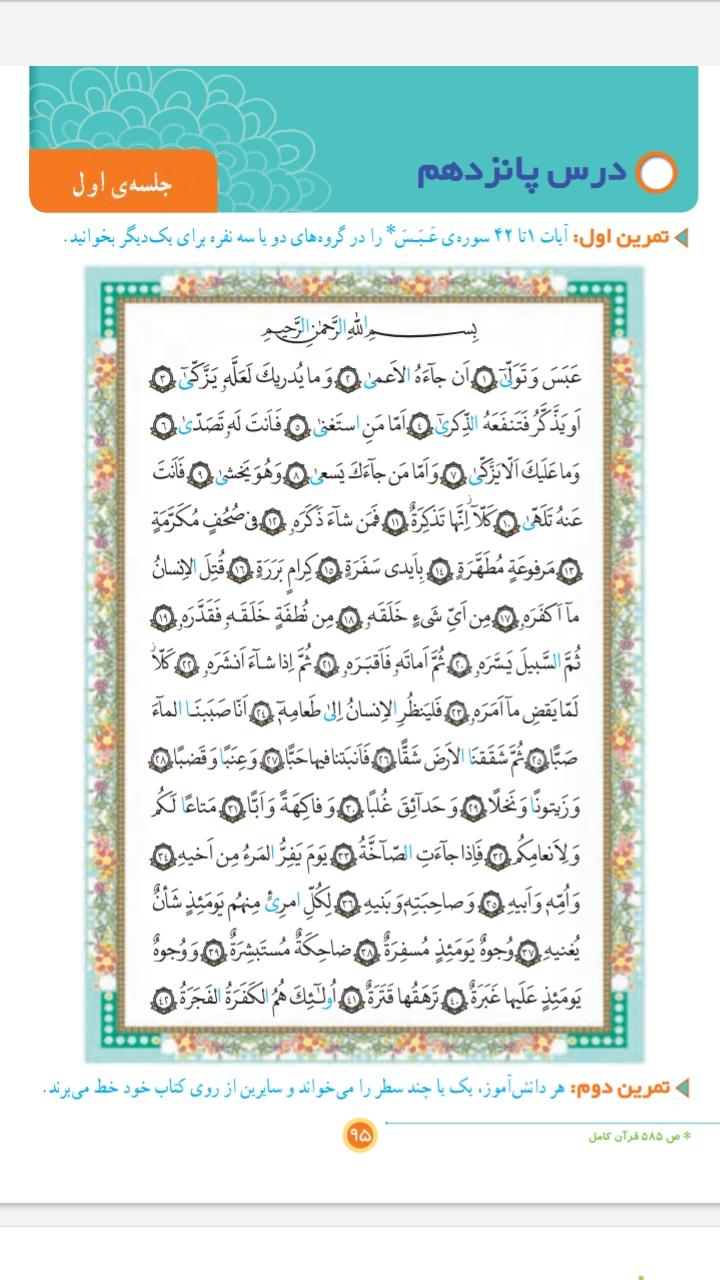 درس پانزدهم
جلسه‌ی اول
تمرین اول: آیات ۱ تا ۴۲ سوره‌ی عَبَسَ* را در گروه‌های دو یا سه نفره برای یک‌دیگر بخوانید.
بِسمِ اللّٰهِ الرَّحمٰنِ الرَّحیمِ
عَبَسَ وَ تَوَلّىٰٓ ﴿۱﴾ اَن جآءَهُ الاَعمىٰ ﴿۲﴾ وَ ما یُدریكَ لَعَلَّهٗ یَزَّكّىٰٓ ﴿۳﴾
اَو یَذَّكَّرُ فَتَنفَعَهُ الذِّكرىٰٓ ﴿۴﴾ اَمّا مَنِ استَغنىٰ ﴿۵﴾ فَاَنتَ لَهٗ تَصَدّىٰ ﴿۶﴾
وَ ما عَلَیكَ اَلّا یَزَّكّىٰ ﴿۷﴾ وَ اَمّا مَن جآءَكَ یَسعىٰ ﴿۸﴾ وَ هُوَ یَخشىٰ ﴿۹﴾ فَاَنتَ
عَنهُ تَلَهّىٰ ﴿۱۰﴾ كَلّآ اِنَّها تَذكِرَةٌ ﴿۱۱﴾ فَمَن شآءَ ذَكَرَهٗ ﴿۱۲﴾ فى صُحُفٍ مُكَرَّمَةٍ
﴿۱۳﴾ مَرفوعَةٍ مُطَهَّرَةٍ ﴿۱۴﴾ بِاَیدى سَفَرَةٍ ﴿۱۵﴾ كِرامٍ بَرَرَةٍ ﴿۱۶﴾ قُتِلَ الاِنسانُ
مآ اَكفَرَهٗ ﴿۱۷﴾ مِن اَىِّ شَىءٍ خَلَقَهٗ ﴿۱۸﴾ مِن نُطفَةٍ خَلَقَهٗ فَقَدَّرَهٗ ﴿۱۹﴾
ثُمَّ السَّبیلَ یَسَّرَهٗ ﴿۲۰﴾ ثُمَّ اَماتَهٗ فَاَقبَرَهٗ ﴿۲۱﴾ ثُمَّ اِذا شآءَ اَنشَرَهٗ ﴿۲۲﴾ كَلّا
لَمّا یَقضِ مآ اَمَرَهٗ ﴿۲۳﴾ فَلیَنظُرِ الاِنسانُ اِلىٰ طَعامِهٖٓ ﴿۲۴﴾ اَنّا صَبَبنَا المآءَ
صَبًّا ﴿۲۵﴾ ثُمَّ شَقَقنَا الاَرضَ شَقًّا ﴿۲۶﴾ فَاَنبَتنا فیها حَبًّا ﴿۲۷﴾ وَ عِنَبًا وَ قَضبًا ﴿۲۸﴾
وَ زَیتونًا وَ نَخلًا ﴿۲۹﴾ وَ حَدآئِقَ غُلبًا ﴿۳۰﴾ وَ فاكِهَةً وَ اَبًّا ﴿۳۱﴾ مَتاعًا لَكُم
وَ لِاَنعامِكُم ﴿۳۲﴾ فَاِذا جآءَتِ الصّآخَّةُ ﴿۳۳﴾ یَومَ یَفِرُّ المَرءُ مِن اَخیهِ ﴿۳۴﴾
وَ اُمِّهٖ وَ اَبیهِ ﴿۳۵﴾ وَ صاحِبَتِهٖ وَ بَنیهِ ﴿۳۶﴾ لِكُلِّ امرِئٍ مِنهُم یَومَئِذٍ شَأنٌ
یُغنیهِ ﴿۳۷﴾ وُجوهٌ یَومَئِذٍ مُسفِرَةٌ ﴿۳۸﴾ ضاحِكَةٌ مُستَبشِرَةٌ ﴿۳۹﴾ وَ وُجوهٌ
یَومَئِذٍ عَلَیها غَبَرَةٌ ﴿۴۰﴾ تَرهَقُها قَتَرَةٌ ﴿۴۱﴾ اُولٰٓئِكَ هُمُ الكَفَرَةُ الفَجَرَةُ ﴿۴۲﴾
تمرین دوم: هر دانش‌آموز، یک یا چند سطر را می‌خواند و سایرین از روی کتاب خود خط می‌برند.
* ص ۵۸۵ قرآن کامل
۹۵